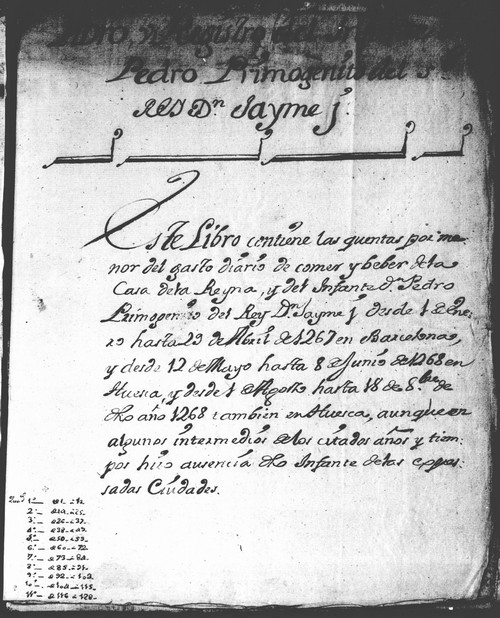 Libro, y Registro del
Pedro Primogenito del S.
REy Dn Jayme j.
Este Libro contiene las quentas por me-
nor del gasto diario de comer y beber de la
Casa dela Reyna, y del Infante dn Pedro
Primogenito del Rey Dn Jayme j desde 1 de Ene-
ro hasta 29 de Abril de 1267 en Barcelona,
y desde 12 de Mayo hasta 8 de Junio de 1268 en
Huesca, y desde 1 de Agosto hasta 18 de 8bre de
dho año 1268 tambien en Huesca, aunque en
algunos intermedios delos citados años y tiem-
pos hizo ausencia dho Infante delas expre-
sadas Ciudades.
1º
2º
3º
4º
5º
6º
7º
8º
9º
10º
11º